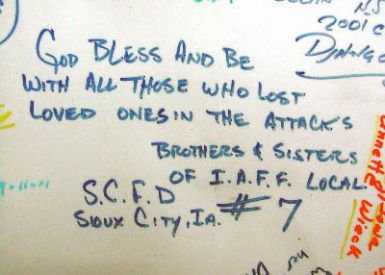 2001
GOD BLESS AND BE
WITH ALL THOSE WHO LOST
LOVED ONES IN THE ATTACK'S
BROTHERS & SISTERS
OF I.A.F.F. LOCAL
S.C.F.D
SIOUX CITY, IA. # 7